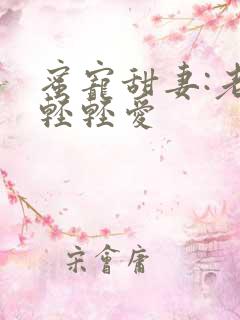 蜜寵甜妻:老
輕輕愛
宋會庸